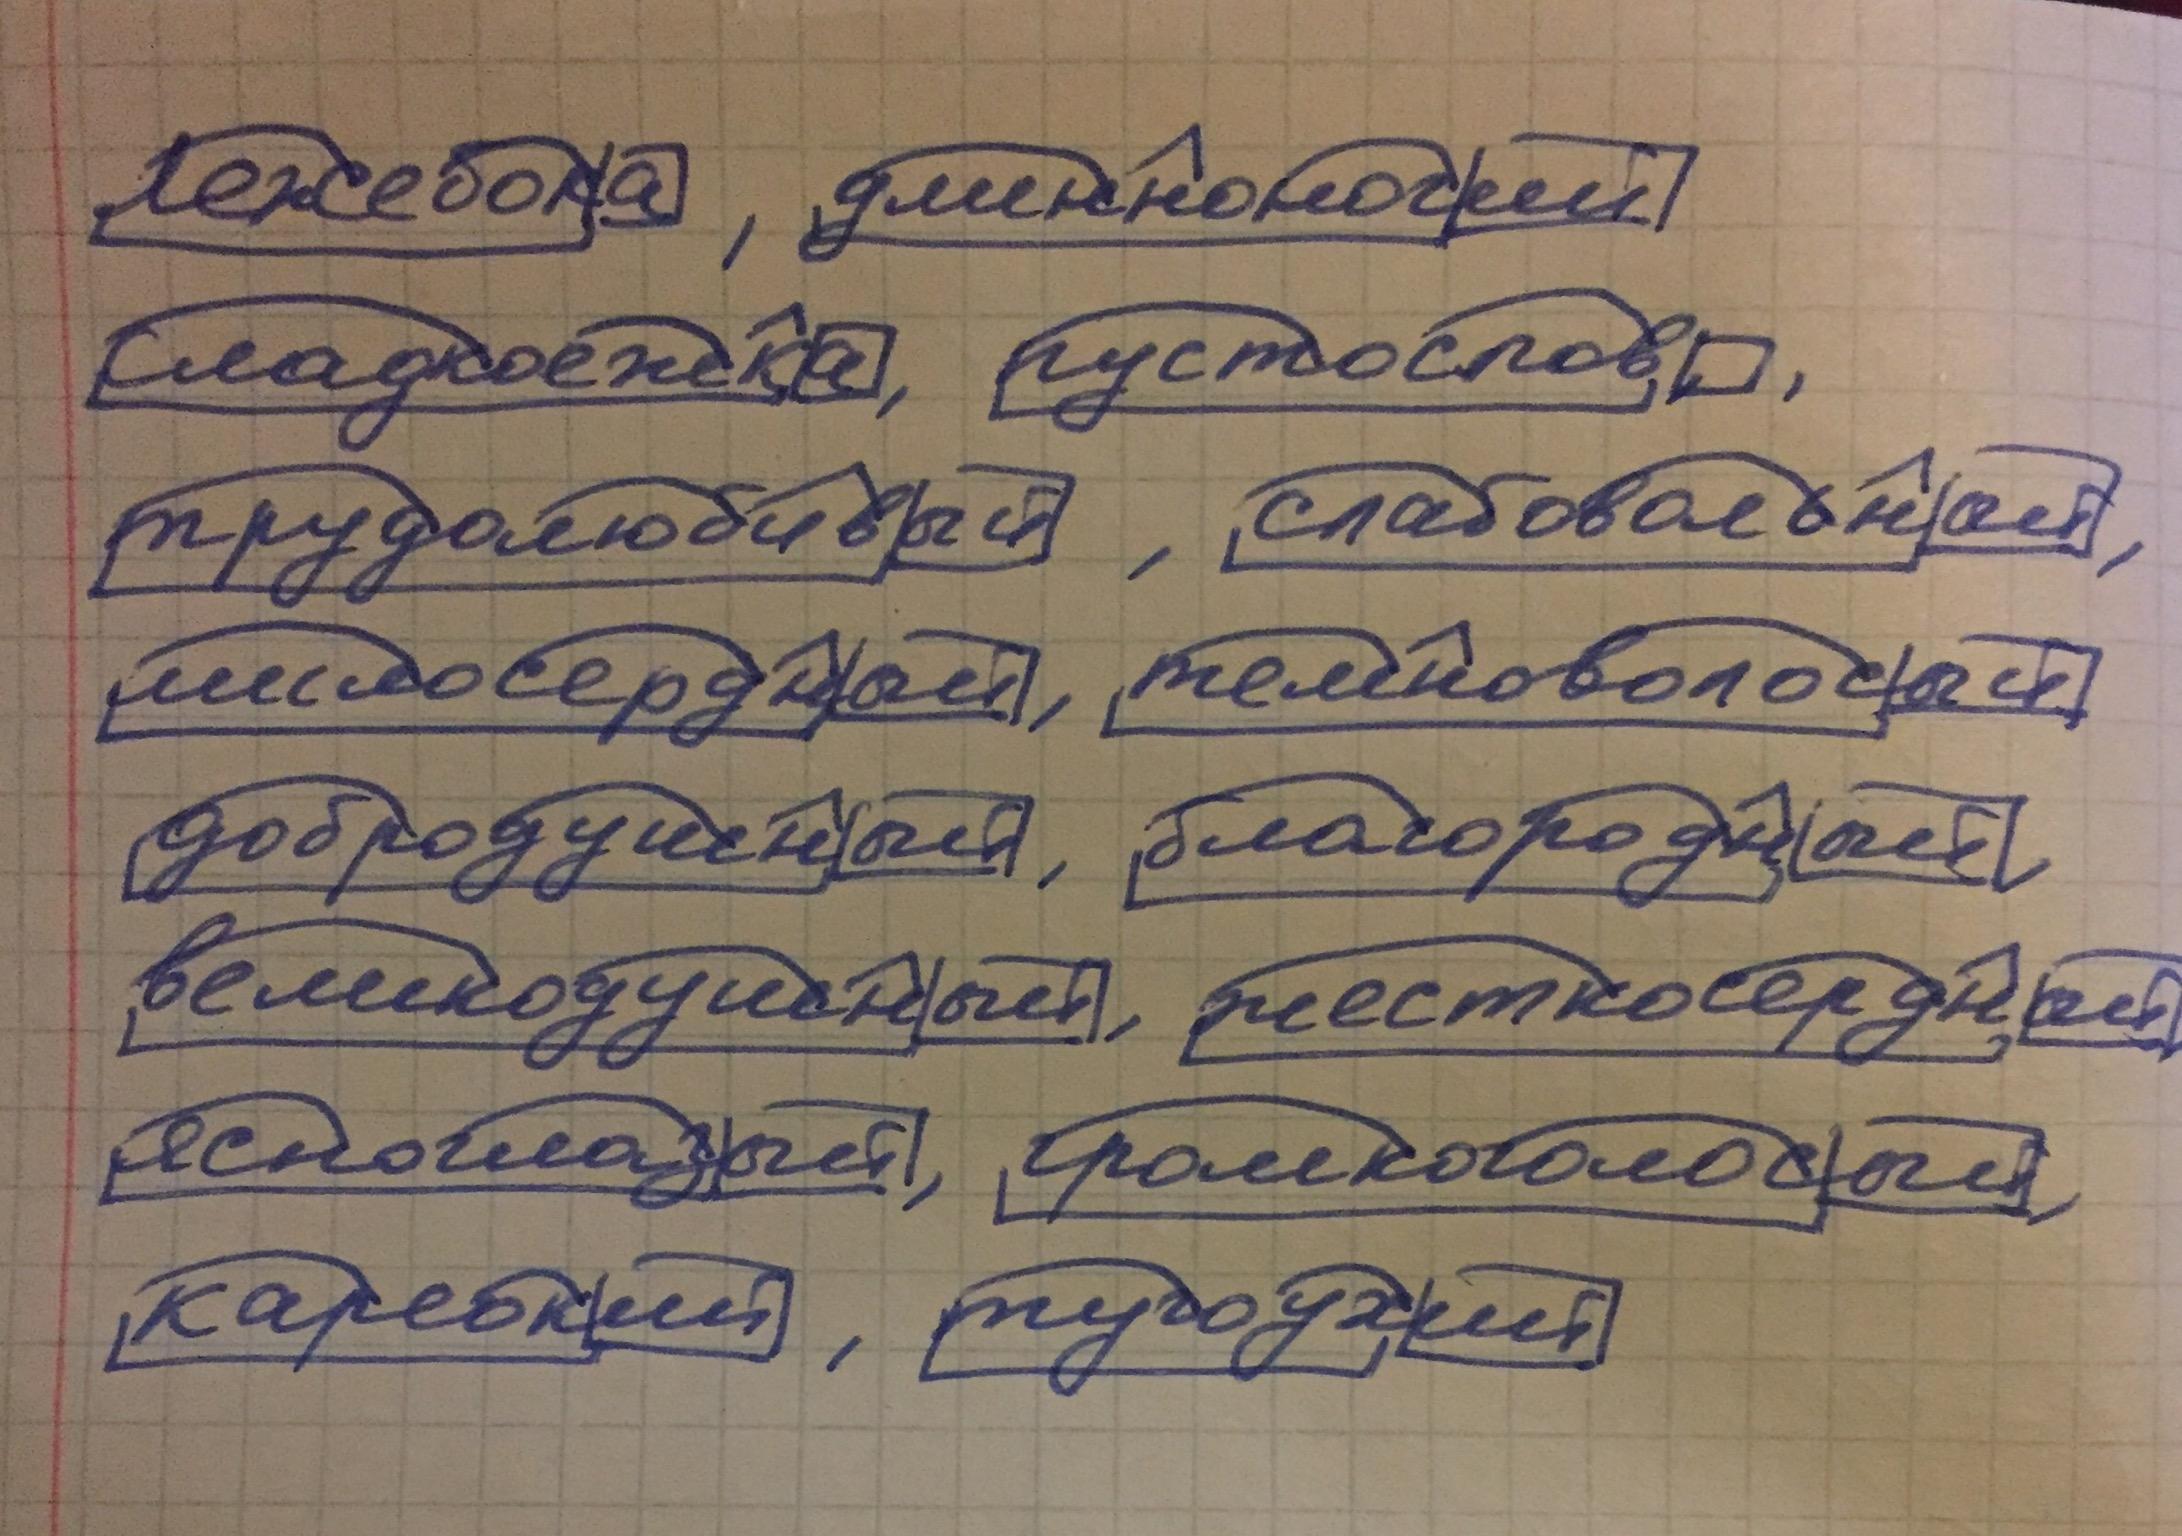 лежебока, длинноногий
сладкоежка, пустослов,
трудолюбивый, слабовольный,
милосердный, темноволосый
добродушный, благородный,
великодушный, жесткосердный
ясноглазый, громкоголосый,
кареокий, тугоухий